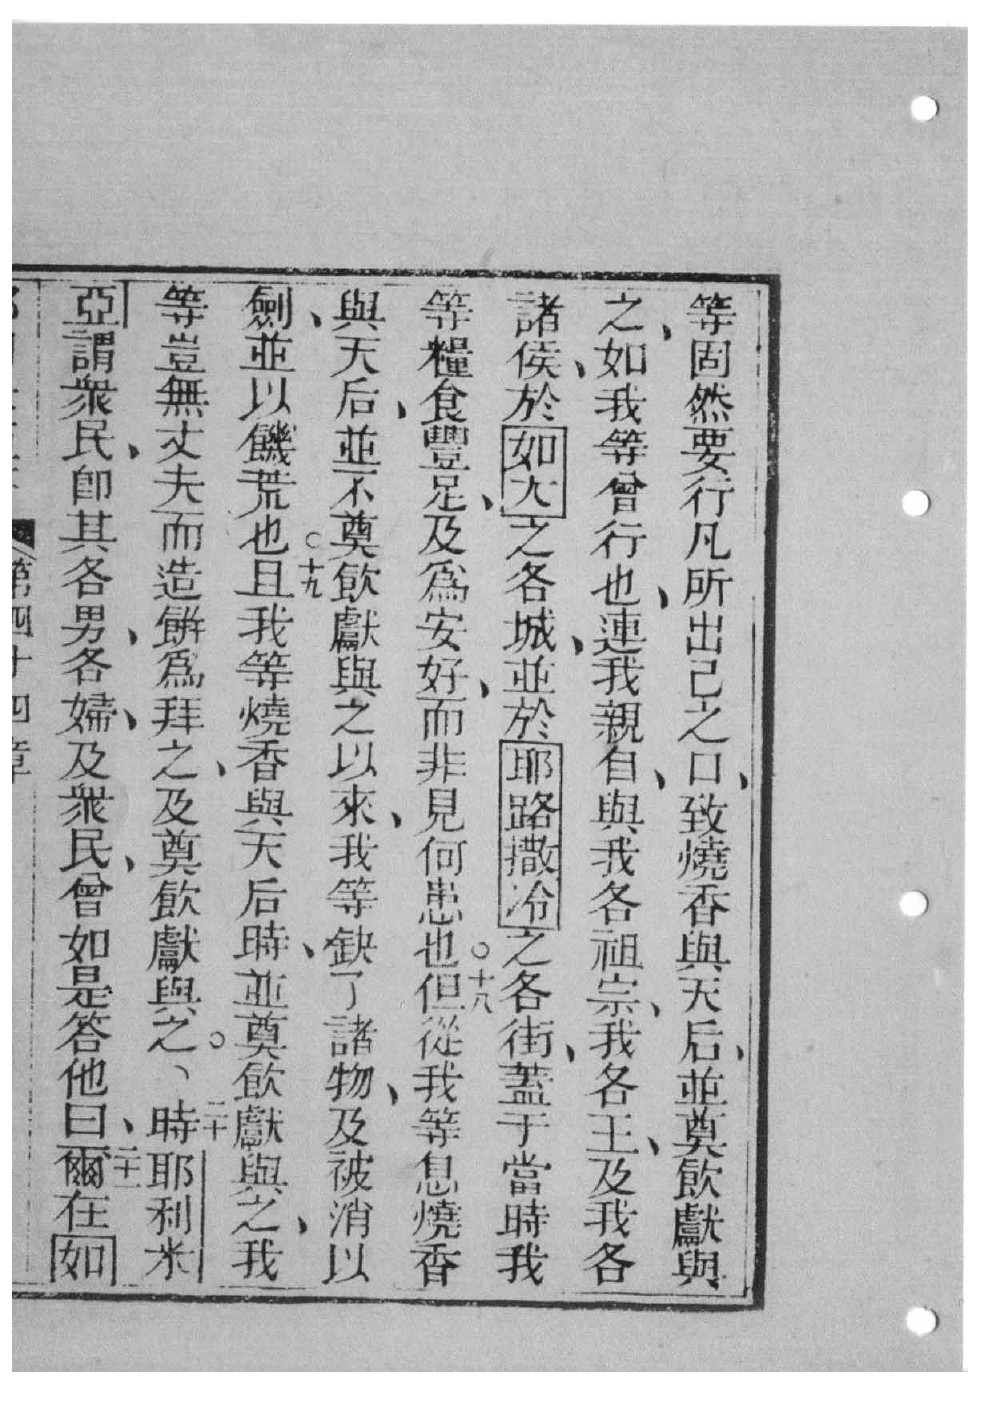 等固然要行凡所出己之口、致燒香與天后、並奠飲獻與
之、如我等曾行也、連我親自、與我各祖宗、我各王、及我各
諸侯、於如大之各城、並於耶路撒冷之各街、蓋于當時我
等糧食豐足、及為安好、而非見何患也。十八但從我等息燒香
與天后、並不奠飲獻與之以來、我等缺了諸物、及被消以
劍、並以饑荒也。十九且我等燒香與天后時、並奠飲獻與之、我
等豈無丈夫而造餅為拜之、及奠飲獻與之。、二十時耶利米
亞謂衆民、卽其各男、各婦、及衆民、曾如是答他曰、二十一爾在如
第四十四章